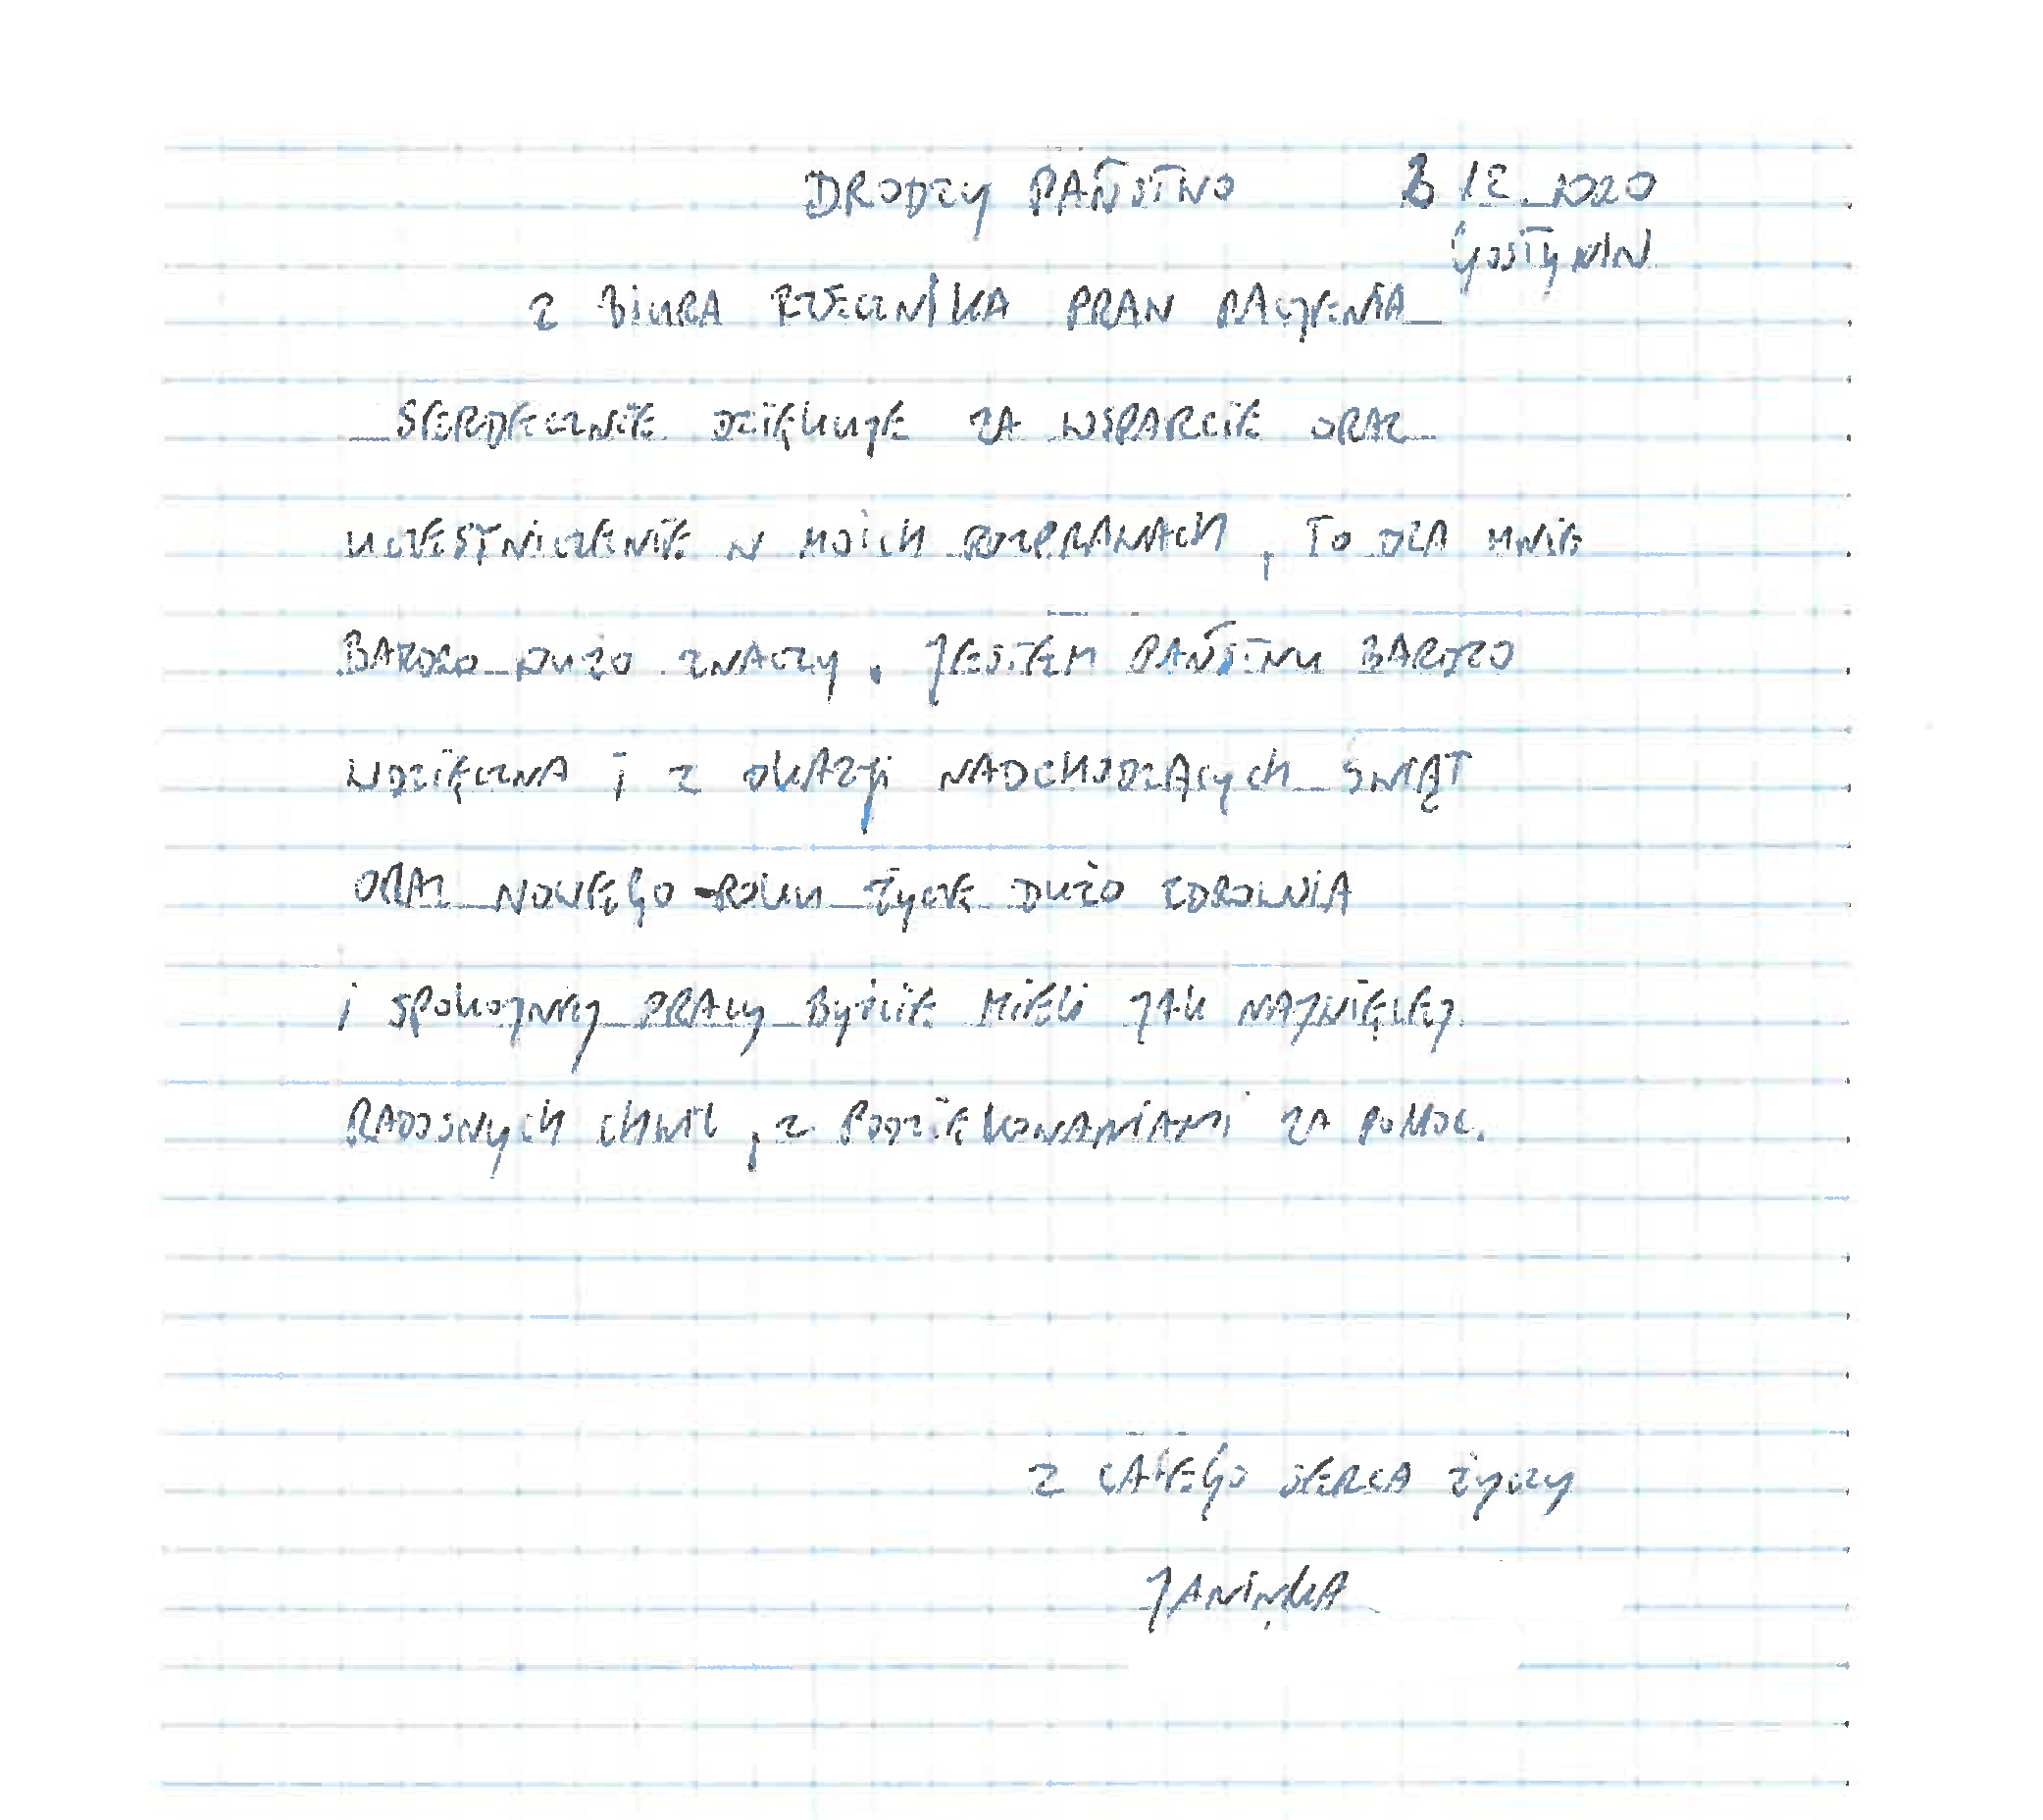 DRODZY PAŃSTWO 3 12 2020
GOSTYNIN
Z BIURA RZECZNIKA PRAW PACJENTA
SERDECZNIE DZIĘKUJE ZA WSPARCIE ORAZ
UCZESTNICZENIE W MOICH ROZPRAWACH, TO DLA MNIE
BARDZO DUŻO ZNACZY. JESTEM PAŃSTWU BARDZO
WDZIĘCZNA I Z OKAZJI NADCHODZĄCYCH ŚWIĄT
ORAZ NOWEGO ROKU ŻYCZE DUŻO ZDROWIA
I SPOKOJNEJ PRACY BYŚCIE MIELI JAK NAJWIĘCEJ
RADOSNYCH CHWIL, Z PODZIEKOWANIAMI ZA POMOC.
Z CAŁEGO SERCA ŻYCZY
JANINKA